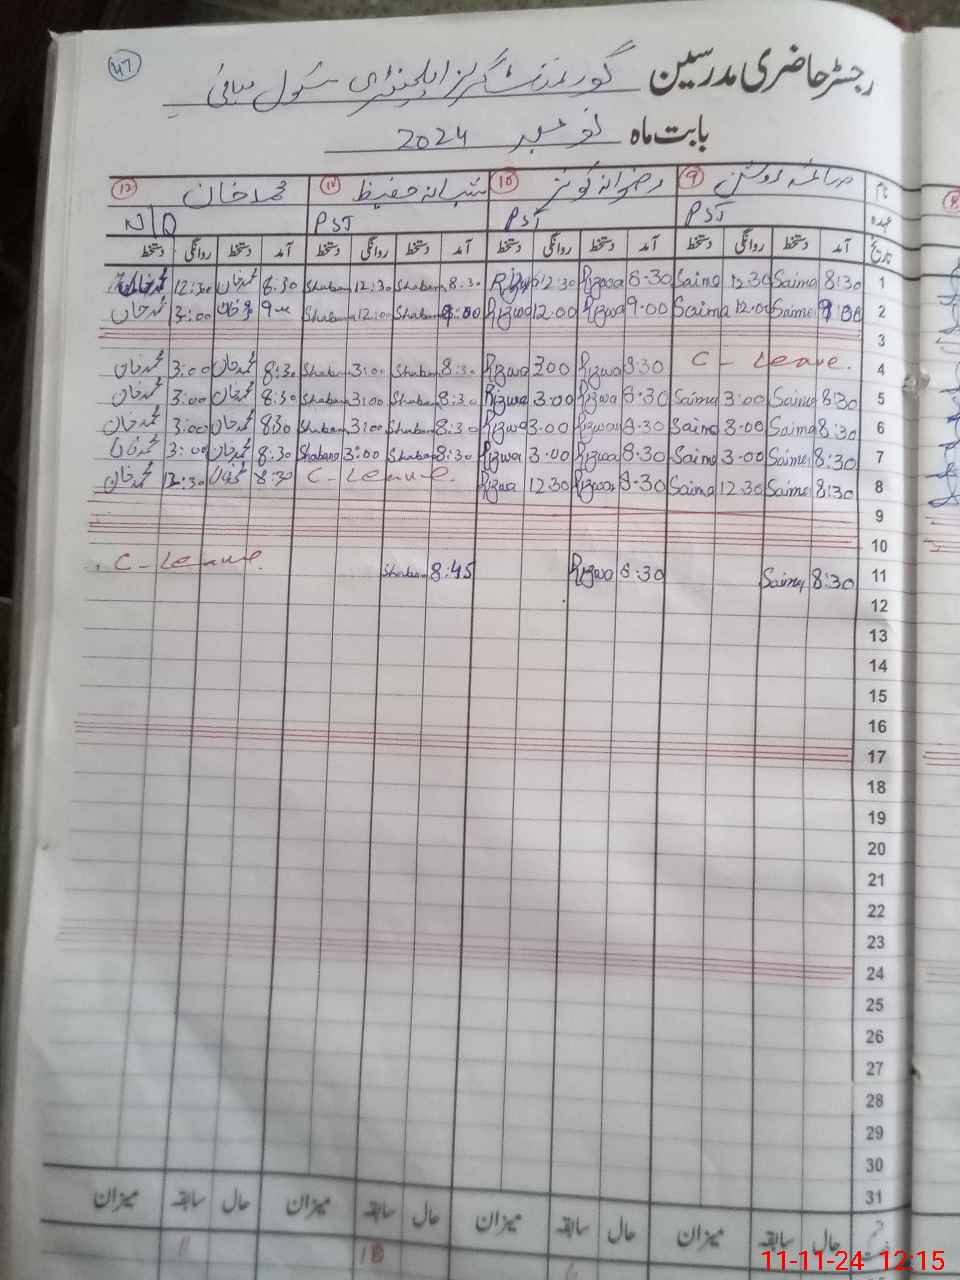 47
رجسٹر حاضری مدرسین گورنمنٹ گرلز ایلیمنٹری سکول
بابت ماہ نومبر 2024
نام 9 صائمہ روشن 10 رضوانہ کوثر 11 شبانہ حفیظ 12 محمد خان
عہدہ PST PST PST N/Q
تاریخ آمد دستخط روانگی دستخط آمد دستخط روانگی دستخط آمد دستخط روانگی دستخط آمد دستخط روانگی دستخط
1 8:30 Saima 12.30 Saima 8.30 Rizwa 12:30 Rizwa 8.30 Shaban 12:30 Shaban 8.30 محمد خان 12:30 محمد خان
2 9:00 Saima 12.00 Saima 9.00 Rizwa 12.00 Rizwa 9:00 Shaban 12:00 Shaban محمد خان 3:00 محمد خان
3
4 C - Leave. 8:30 Rizwa 3.00 Rizwa 8:30 Shaban 3:00 Shaban 8:30 محمد خان 3:00 محمد خان
5 8:30 Saima 3:00 Saima 8.30 Rizwa 3.00 Rizwa 8:30 Shaban 3:00 Shaban 8:30 محمد خان 3:00 محمد خان
6 8:30 Saima 3.00 Saima 8.30 Rizwa 3.00 Rizwa 8:30 Shaban 3:00 Shaban 8:30 محمد خان 3:00 محمد خان
7 8:30 Saima 3.00 Saima 8.30 Rizwa 3.00 Rizwa 8:30 Shaban 3:00 Shabana 8:30 محمد خان 3:00 محمد خان
8 8:30 Saima 12.30 Saima 8.30 Rizwa 12.30 Rizwa C - Leave. 8:30 محمد خان 12:30 محمد خان
9
10
11 8:30 Saima 8.30 Rizwa 8:45 Shaban C - Leave.
12
13
14
15
16
17
18
19
20
21
22
23
24
25
26
27
28
29
30
31
حال سابقہ میزان حال سابقہ میزان حال سابقہ میزان حال سابقہ میزان
11-11-24 12:15